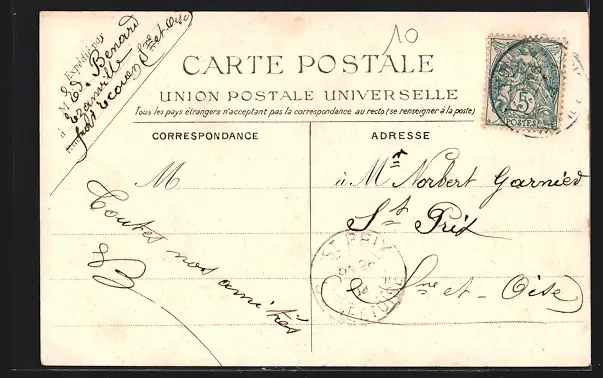 Expédié par
M Ed. Benard
à Ezanville
par Ecouen Sne et Oise
10
CARTE POSTALE
UNION POSTALE UNIVERSELLE
Tous les pays étrangers n'acceptent pas la correspondance au recto (se renseigner à la poste)
5c
POSTES
CORRESPONDANCE
ADRESSE
M
Toutes nos amitiés
B
à Mr Norbert Garnier
St Prix
Sne et-Oise
St PRIX